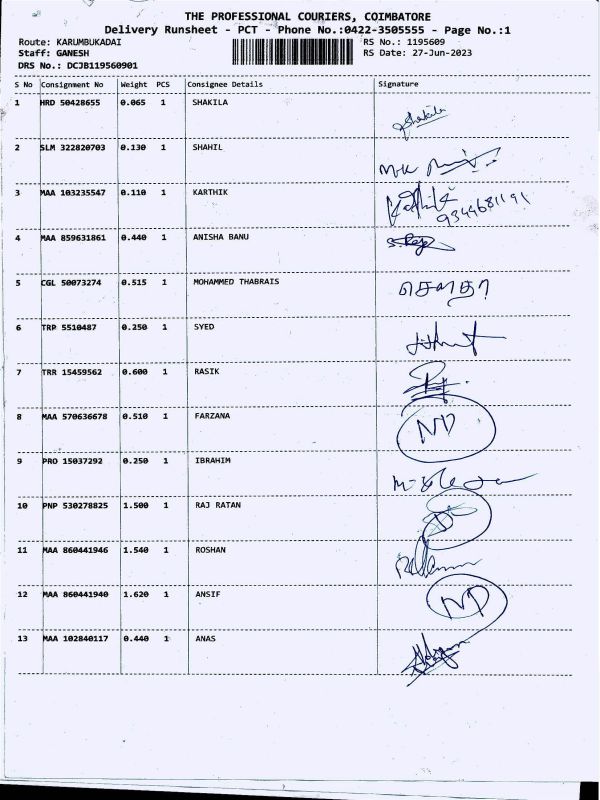 THE PROFESSIONAL COURIERS, COIMBATORE
Delivery Runsheet - PCT - Phone No.:0422-3505555 - Page No.:1
Route: KARUMBUKADAI RS No.: 1195609
Staff: GANESH RS Date: 27-Jun-2023
DRS No.: DCJB119560901
S No Consignment No Weight PCS Consignee Details Signature
1 HRD 50428655 0.065 1 SHAKILA Shakila
2 SLM 322820703 0.130 1 SHAHIL
3 MAA 103235547 0.110 1 KARTHIK Karthik
9344681191
4 MAA 859631861 0.440 1 ANISHA BANU
5 CGL 50073274 0.515 1 MOHAMMED THABRAIS
6 TRP 5510487 0.250 1 SYED
7 TRR 15459562 0.600 1 RASIK
8 MAA 570636678 0.510 1 FARZANA ND
9 PRO 15037292 0.250 1 IBRAHIM
10 PNP 530278825 1.500 1 RAJ RATAN
11 MAA 860441946 1.540 1 ROSHAN
12 MAA 860441940 1.620 1 ANSIF ND
13 MAA 102840117 0.440 1 ANAS